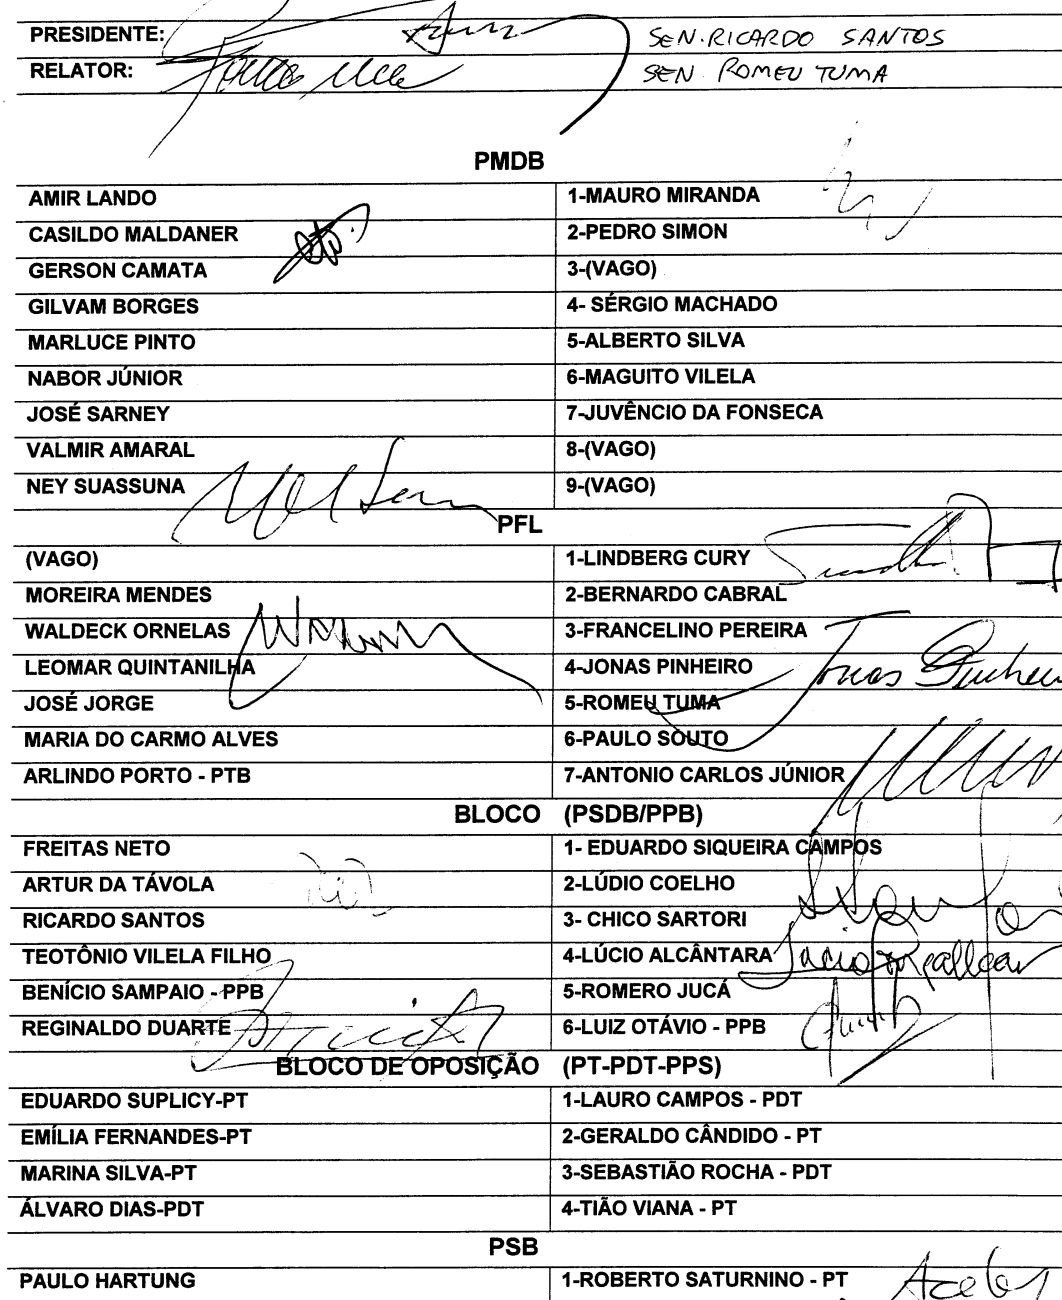 PRESIDENTE: SEN. RICARDO SANTOS
RELATOR: Romeu Tuma SEN. ROMEU TUMA
PMDB
AMIR LANDO 1-MAURO MIRANDA
CASILDO MALDANER 2-PEDRO SIMON
GERSON CAMATA 3-(VAGO)
GILVAM BORGES 4- SÉRGIO MACHADO
MARLUCE PINTO 5-ALBERTO SILVA
NABOR JÚNIOR 6-MAGUITO VILELA
JOSÉ SARNEY 7-JUVÊNCIO DA FONSECA
VALMIR AMARAL 8-(VAGO)
NEY SUASSUNA 9-(VAGO)
PFL
(VAGO) 1-LINDBERG CURY
MOREIRA MENDES 2-BERNARDO CABRAL
WALDECK ORNELAS 3-FRANCELINO PEREIRA
LEOMAR QUINTANILHA 4-JONAS PINHEIRO Jonas Pinheiro
JOSÉ JORGE 5-ROMEU TUMA
MARIA DO CARMO ALVES 6-PAULO SOUTO
ARLINDO PORTO - PTB 7-ANTONIO CARLOS JÚNIOR
BLOCO (PSDB/PPB)
FREITAS NETO 1- EDUARDO SIQUEIRA CAMPOS
ARTUR DA TÁVOLA 2-LÚDIO COELHO
RICARDO SANTOS 3- CHICO SARTORI
TEOTÔNIO VILELA FILHO 4-LÚCIO ALCÂNTARA
BENÍCIO SAMPAIO - PPB 5-ROMERO JUCÁ
REGINALDO DUARTE 6-LUIZ OTÁVIO - PPB
BLOCO DE OPOSIÇÃO (PT-PDT-PPS)
EDUARDO SUPLICY-PT 1-LAURO CAMPOS - PDT
EMÍLIA FERNANDES-PT 2-GERALDO CÂNDIDO - PT
MARINA SILVA-PT 3-SEBASTIÃO ROCHA - PDT
ÁLVARO DIAS-PDT 4-TIÃO VIANA - PT
PSB
PAULO HARTUNG 1-ROBERTO SATURNINO - PT